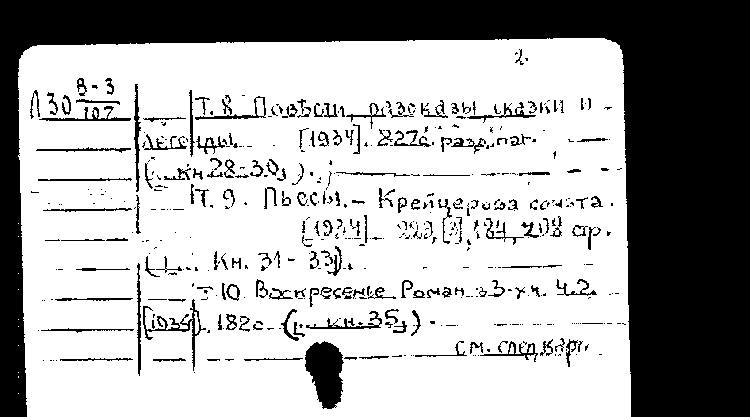 2.
Л30 В-3/107
Т. 8. Повѣсти, разсказы, сказки и
легенды. [1934]. 227с. разд. паг.
(... кн. 28-30,).
Т. 9. Пьесы. – Крейцерова соната.
[1934] 223, [3], 184, 208 стр.
(... Кн. 31 - 33).
Т. 10 Воскресенье Роман в 3-х ч. Ч. 2.
[1935]. 182с. (... кн. 35,).
См. след. карт.